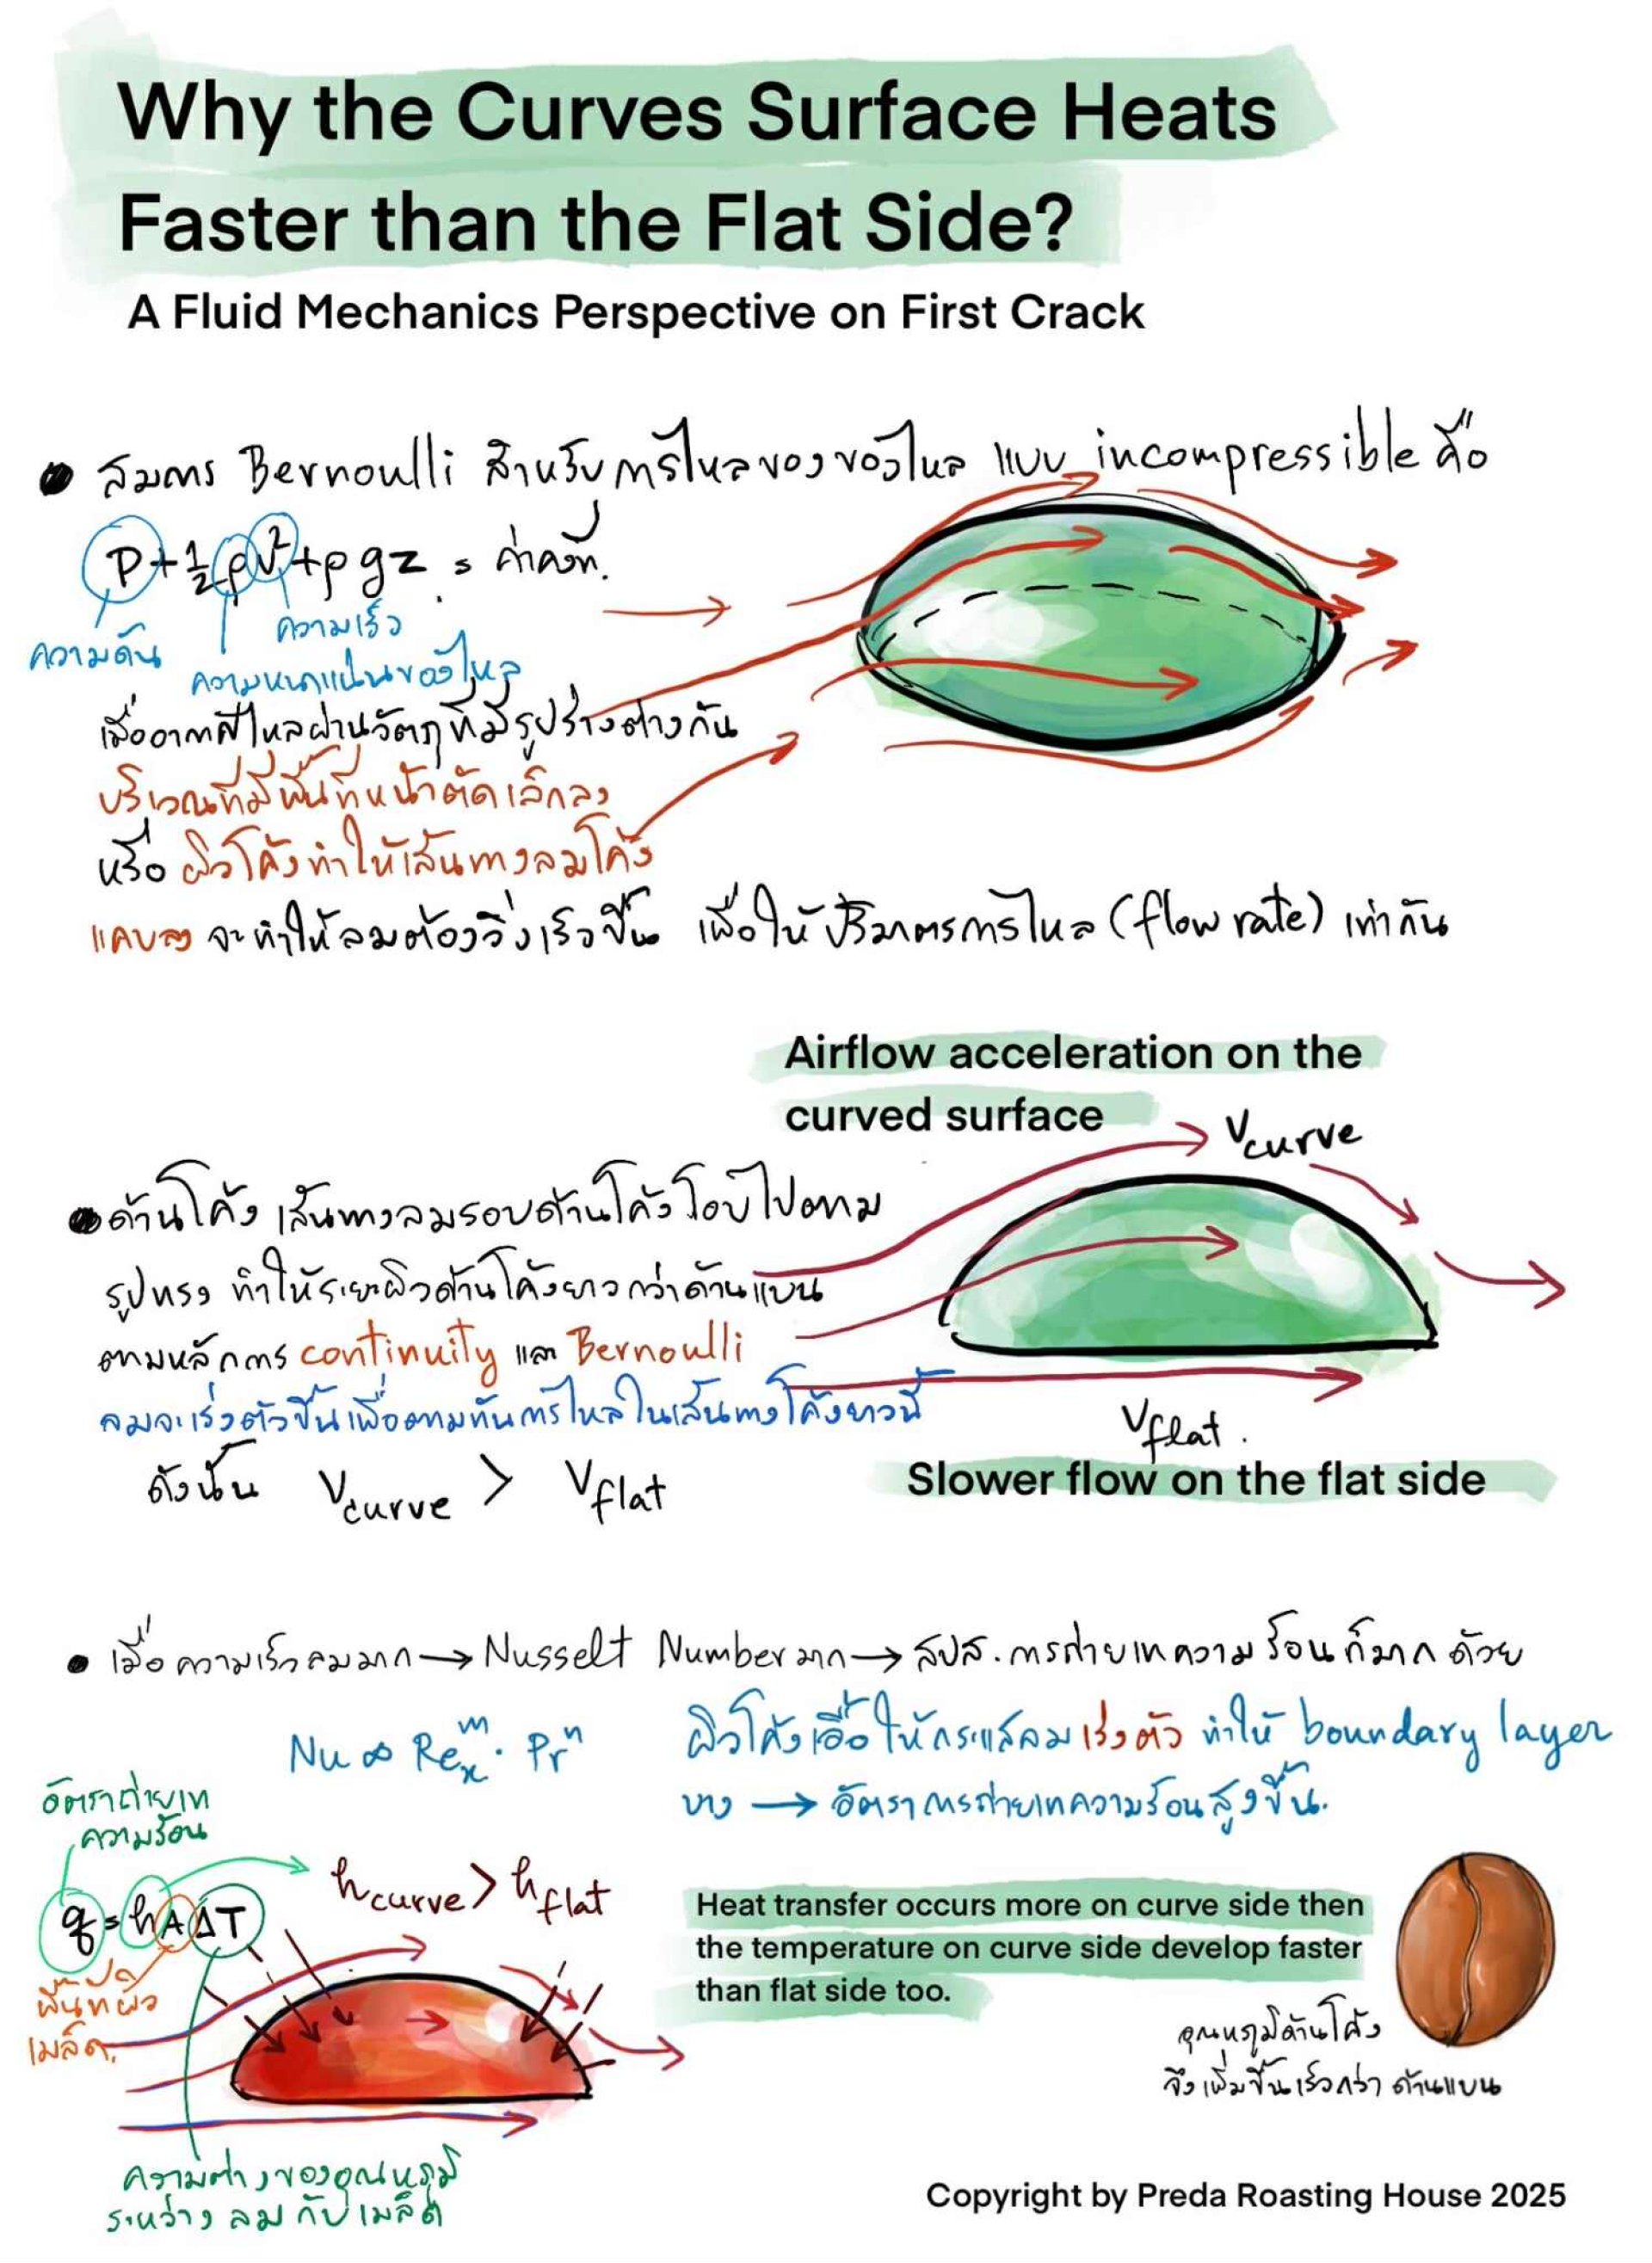 Why the Curves Surface Heats
Faster than the Flat Side?
A Fluid Mechanics Perspective on First Crack
สมการ Bernoulli สำหรับการไหลของของไหล แบบ incompressible คือ
P + ½ρv² + ρgz = ค่าคงที่.
ความดัน
ความเร็ว
ความหนาแน่นของไหล
เมื่ออากาศไหลผ่านวัตถุที่มีรูปร่างต่างกัน
บริเวณที่มีพื้นที่หน้าตัดเล็กลง
หรือ ผิวโค้งทำให้เส้นทางลมโค้ง
แคบลง จะทำให้ลมต้องวิ่งเร็วขึ้น เพื่อให้ปริมาตรการไหล (flow rate) เท่ากัน
Airflow acceleration on the
curved surface
Vcurve
ด้านโค้ง เส้นทางลมรอบด้านโค้งโอบไปตาม
รูปทรง ทำให้ระยะผิวด้านโค้งยาวกว่าด้านแบน
ตามหลักการ continuity และ Bernoulli
ลมจะเร่งตัวขึ้นเพื่อตามทันการไหลในเส้นทางโค้งยาวนี้
ดังนั้น Vcurve > Vflat
Vflat.
Slower flow on the flat side
เมื่อความเร็วลมมาก → Nusselt Number มาก → สปส. การถ่ายเทความร้อนก็มากด้วย
Nu ∝ Reₓᵐ · Prⁿ
ผิวโค้งเอื้อให้กระแสลมเร่งตัว ทำให้ boundary layer
บาง → อัตราการถ่ายเทความร้อนสูงขึ้น.
อัตราถ่ายเท
ความร้อน
q = hAΔT
hcurve > hflat
พื้นที่ผิว
เมล็ด.
Heat transfer occurs more on curve side then
the temperature on curve side develop faster
than flat side too.
อุณหภูมิด้านโค้ง
จึงเพิ่มขึ้นเร็วกว่า ด้านแบน
ความต่างของอุณหภูมิ
ระหว่าง ลม กับ เมล็ด
Copyright by Preda Roasting House 2025